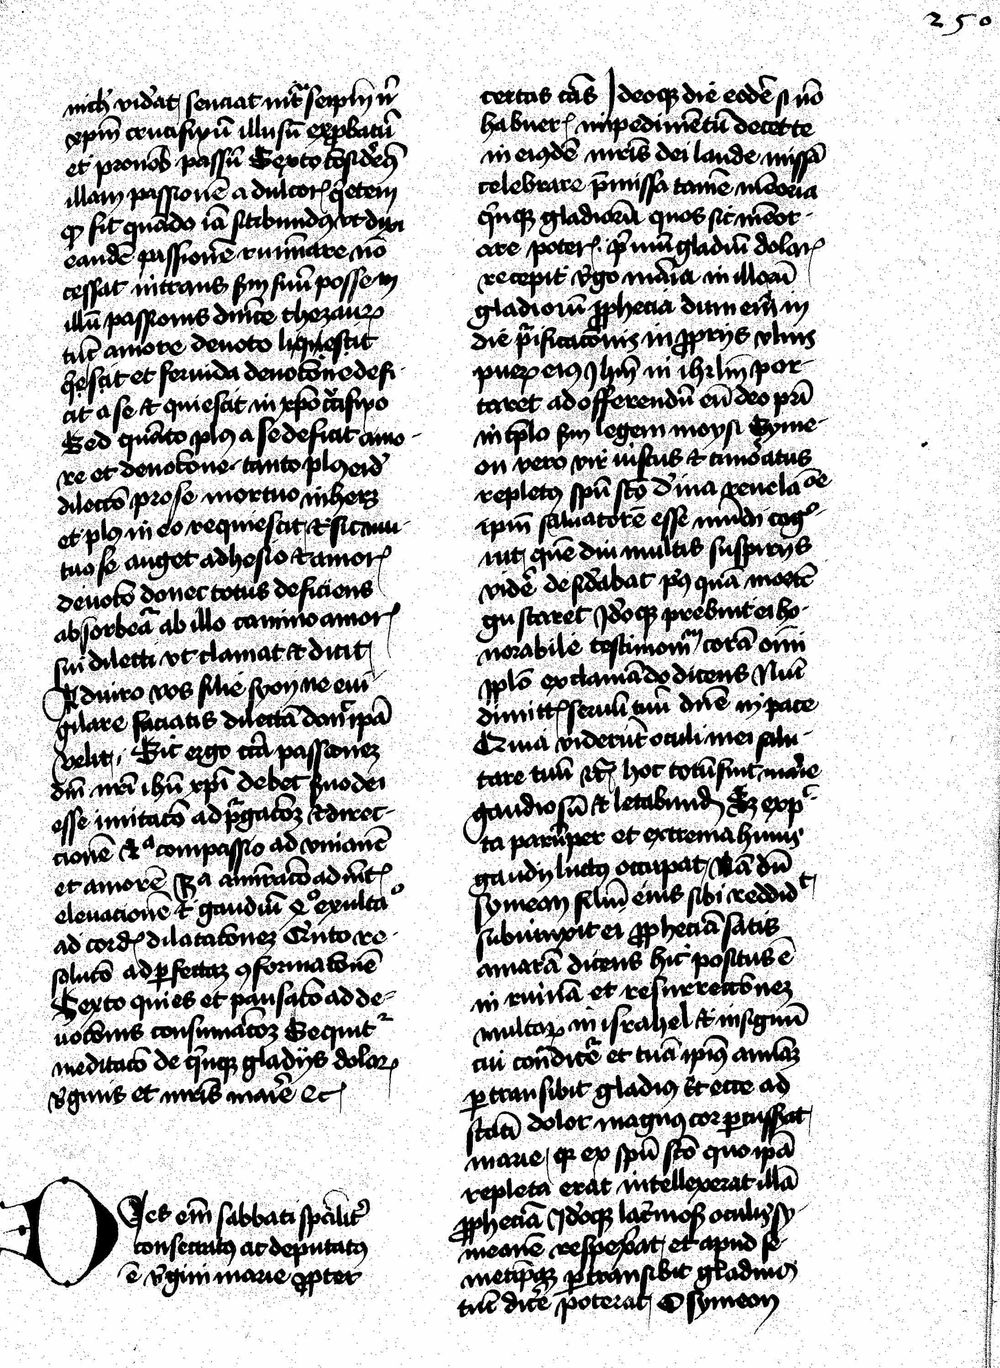 250
nich vidat senciat nita seipm nisi
xpm crucifixu illusu exprobatu
et pro nob passu Sexto consideret
illam passione a dulcor quietem
quod fit quando ia sitibundus ut dixi
eande passione ruminare no
cessat intrans sm suu posse in
illu passionis dnice thezauru
tuc amore devoto liquescit
hescit et fervida devotone defi-
cit a se et quiescit in xpo crucifixo
Sed quanto plus a se deficit amo-
re et devotone tanto plus eid
dilecto pro se mortuo inheret
et plus in eo requiescit et sic mu-
tuo se auget adhesio et amor
devoto donec totus deficiens
absorbea ab illo camino amoris
sui dilecti ut clamat et dicit
Adiuro vos filie syon ne evi-
gilare faciatis dilecta donec ipa
velit Sic ergo circa passionem
dni nri ihu xpi debet primo dei
esse imitato ad purgatoem et direc-
cione 2a compassio ad unione
et amore 3a admiratio ad mentis
elevacione 4 gaudiu et exulta
ad cordis dilatatonem Quinto re-
soluto ad perfectam conformatione
Sexto quies et pausato ad de-
votonis consumatoem Sequitur
meditato de quinque gladiis dolor
virginis et matris marie etc
Dies em sabbati specialiter
consecratus ac deputatus
e virgini marie propter
certas cas Ideoque die eode si no
habueris impedimentu decet te
in eiusde matris dei laude missa
celebrare premissa tame memoria
quinque gladioru quos sic memor-
are poteris primu gladiu doloris
recepit virgo maria in illoru
gladioru prophecia dum eum in
die purificatonis in propriis ulnis
pueru eius Ihm in ihrlm por-
taret ad offerendu eu deo pri
in templo sm legem moysi Syme-
on vero vir iustus et timoratus
repletus spu sco divina revelacoe
ipm salvatore esse mundi cogno-
vit que diu multis suspiriis
videre desiderabat prius qua morte
gustaret Ideoque prebuit ei ho-
norabile testimonium cora omi
populo exclamando dicens Nunc
dimittis servu tuu dne in pace
Quia viderunt oculi mei salu-
tare tuu etc hoc totu fuit marie
gaudiosu et letabund Sed expec-
ta parumper et extrema huius
gaudij luctus occupat Na du
symeon filiu eius sibi reddidit
subiunxit ei prophecia satis
amara dicens hic positus e
in ruina et resurrectonem
multoru in israhel et in signu
cui contradicetur et tua ipius animam
pertransibit gladius Et ecce ad
stati dolor magnus cor percussit
marie quia ex spu sco quo ipa
repleta erat intellexerat illa
prophecia Ideoque lacrimosis oculis sy-
meone respexerat et apud se
metipsam pertransibit gladius
tuc dice poterat O symeon